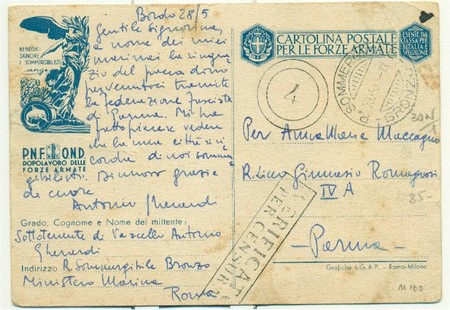 Bordo 28/5
Gentile Signorina,
a nome dei miei
marinai la ringra
zio del pacco dono
pervenutoci tramite
la federazione fascista
di Parma. Mi ha
fatto piacere vedere
che la mia città si ri
cordi di noi sommer
gibilisti. Di nuovo grazie
di cuore
Antonio Gherardi
BENEDICI
SIGNORE
I SOMMERGIBILISTI
P.N.F. OND
DOPOLAVORO DELLE
FORZE ARMATE
Grado, Cognome e Nome del mittente:
Sottotenente di Vascello Antonio
Gherardi
Indirizzo R. Sommergibile Bronzo
Ministero Marina
Roma
CARTOLINA POSTALE
PER LE FORZE ARMATE
ESENTE DA
TASSA PER
L'ITALIA E
4
R. SOMMERG
BRONZO
30N
Per Anna Maria Maccagno
R. Liceo Ginnasio Romagnosi
IV A
85-
Parma
VERIFICAT
PER CENSUR
Grafiche I.G.A.P. - Roma-Milano
M 100